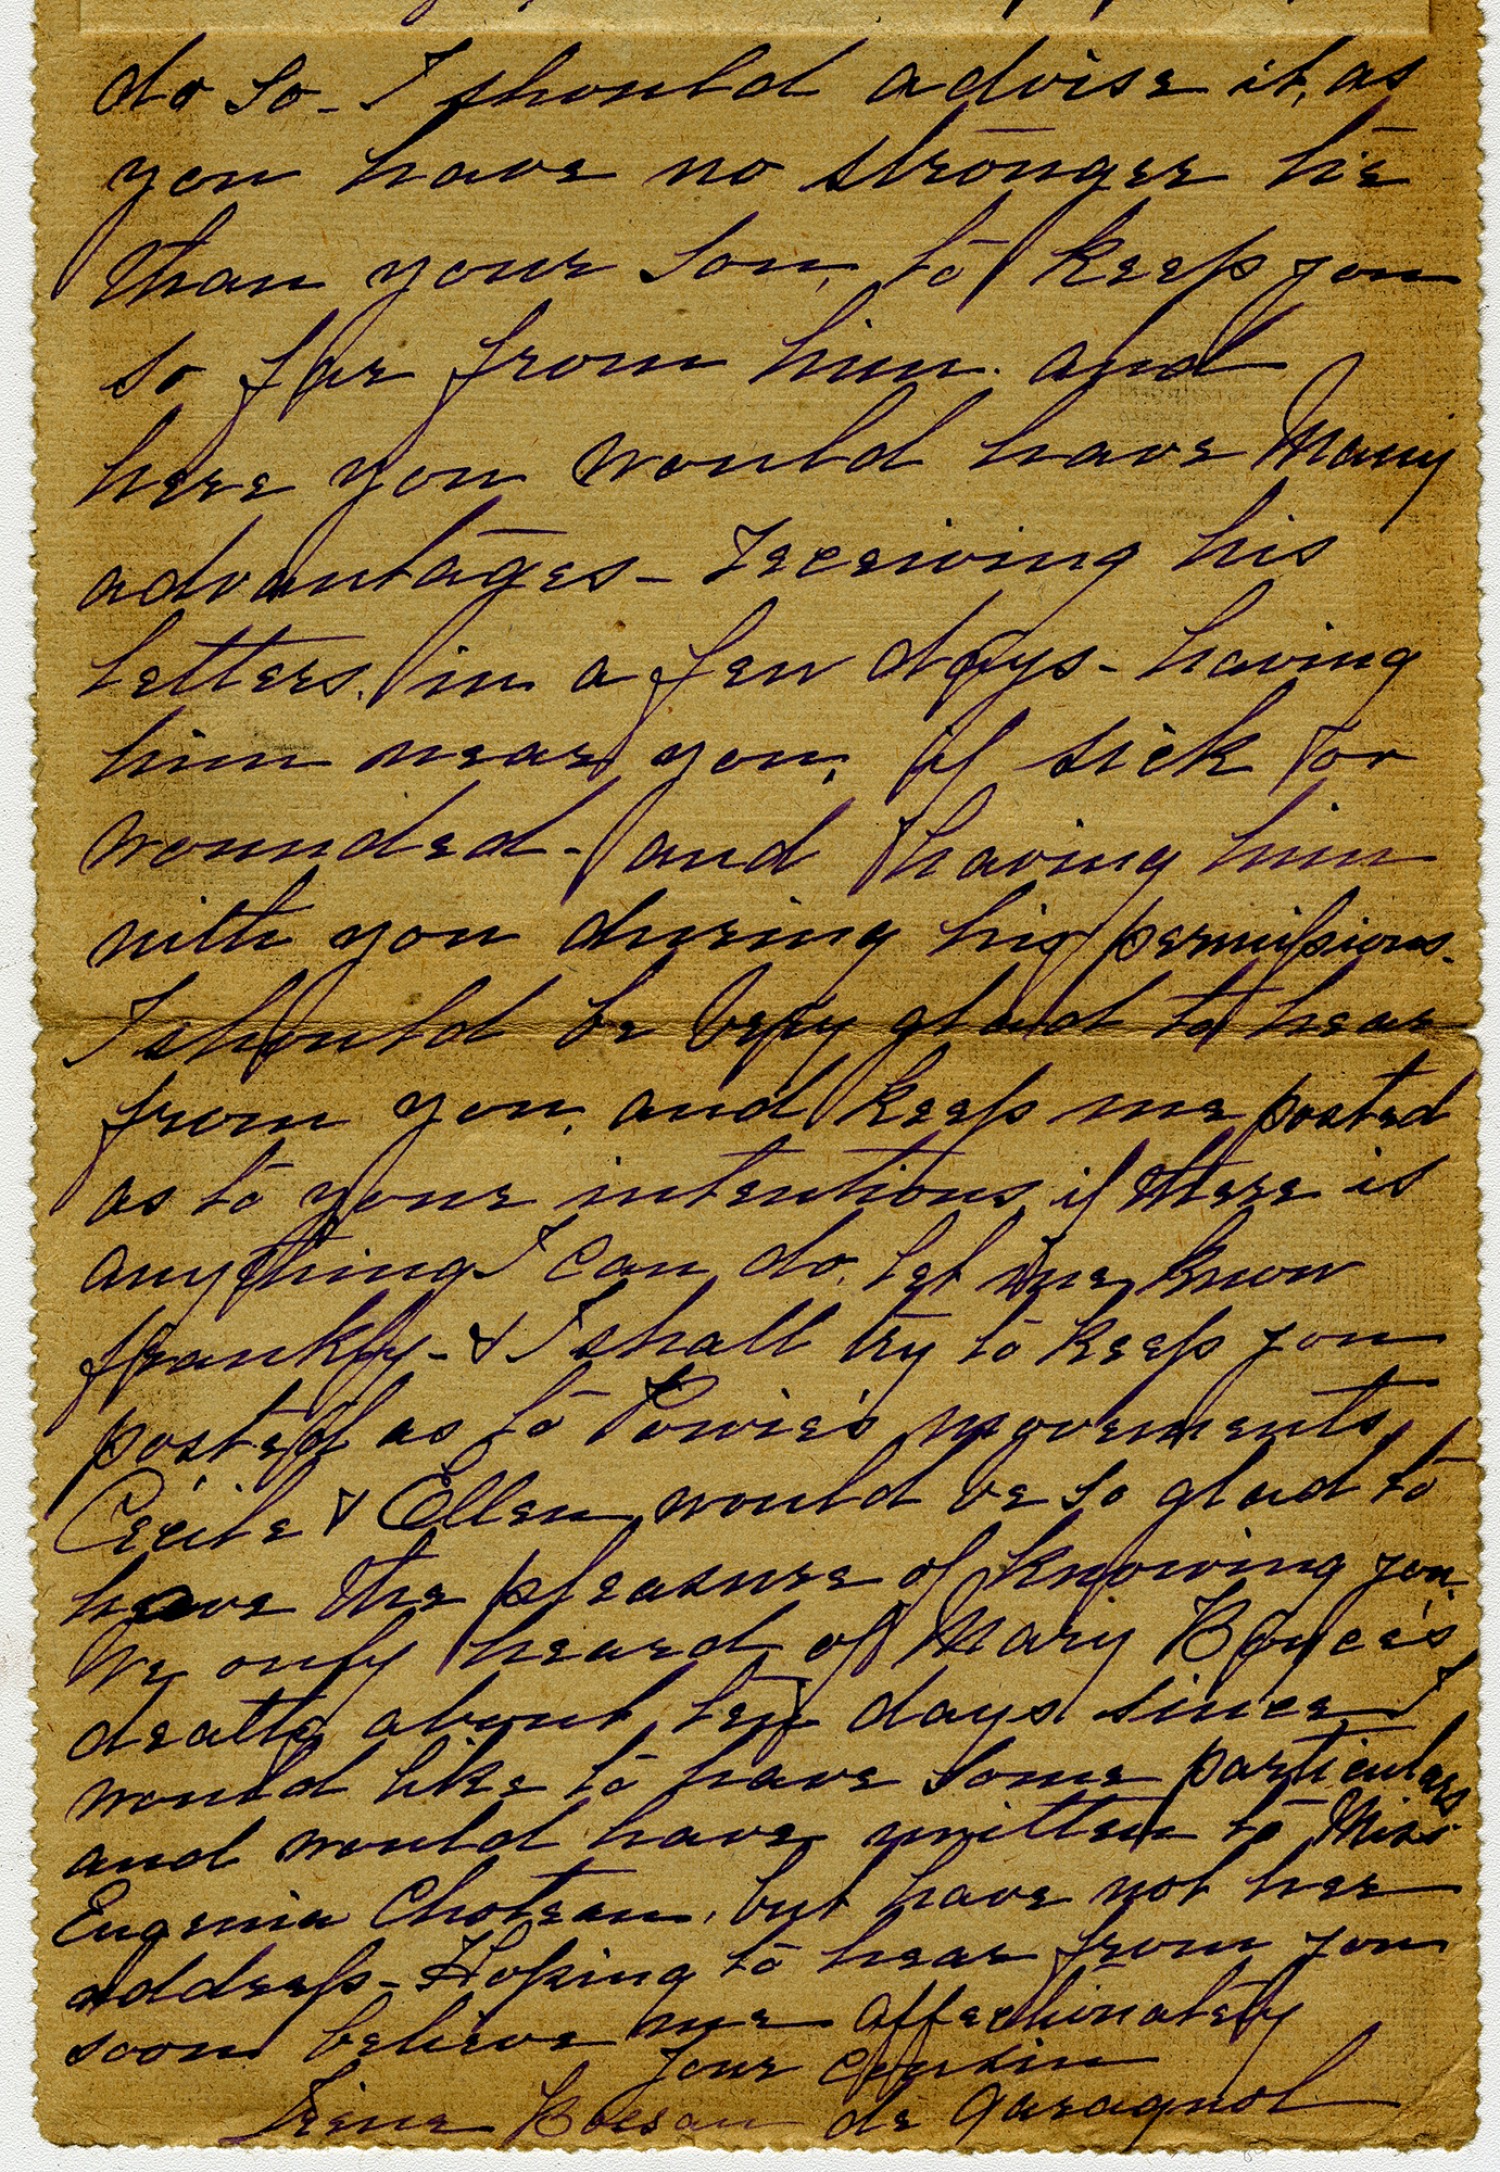 do so - I should advise it, as
you have no stronger tie
than your son, to keep you
so far from him. and
here you would have many
advantages - receiving his
letters. in a few days - having
him near you, if sick or
wounded - and having him
with you during his permissions -
I should be very glad to hear
from you, and keep me posted
as to your intentions if there is
anything I can do, let me know
frankly - & I shall try to keep you
posted as to Powie's movements
Cecile & Ellen would be so glad to
have the pleasure of knowing you.
We only heard of Mary Boyce's
death about ten days since I
would like to have some particulars
and would have written to Miss
Eugenia Choteau, but have not her
address - Hoping to hear from you
soon believe me affectionately
your cousin
de